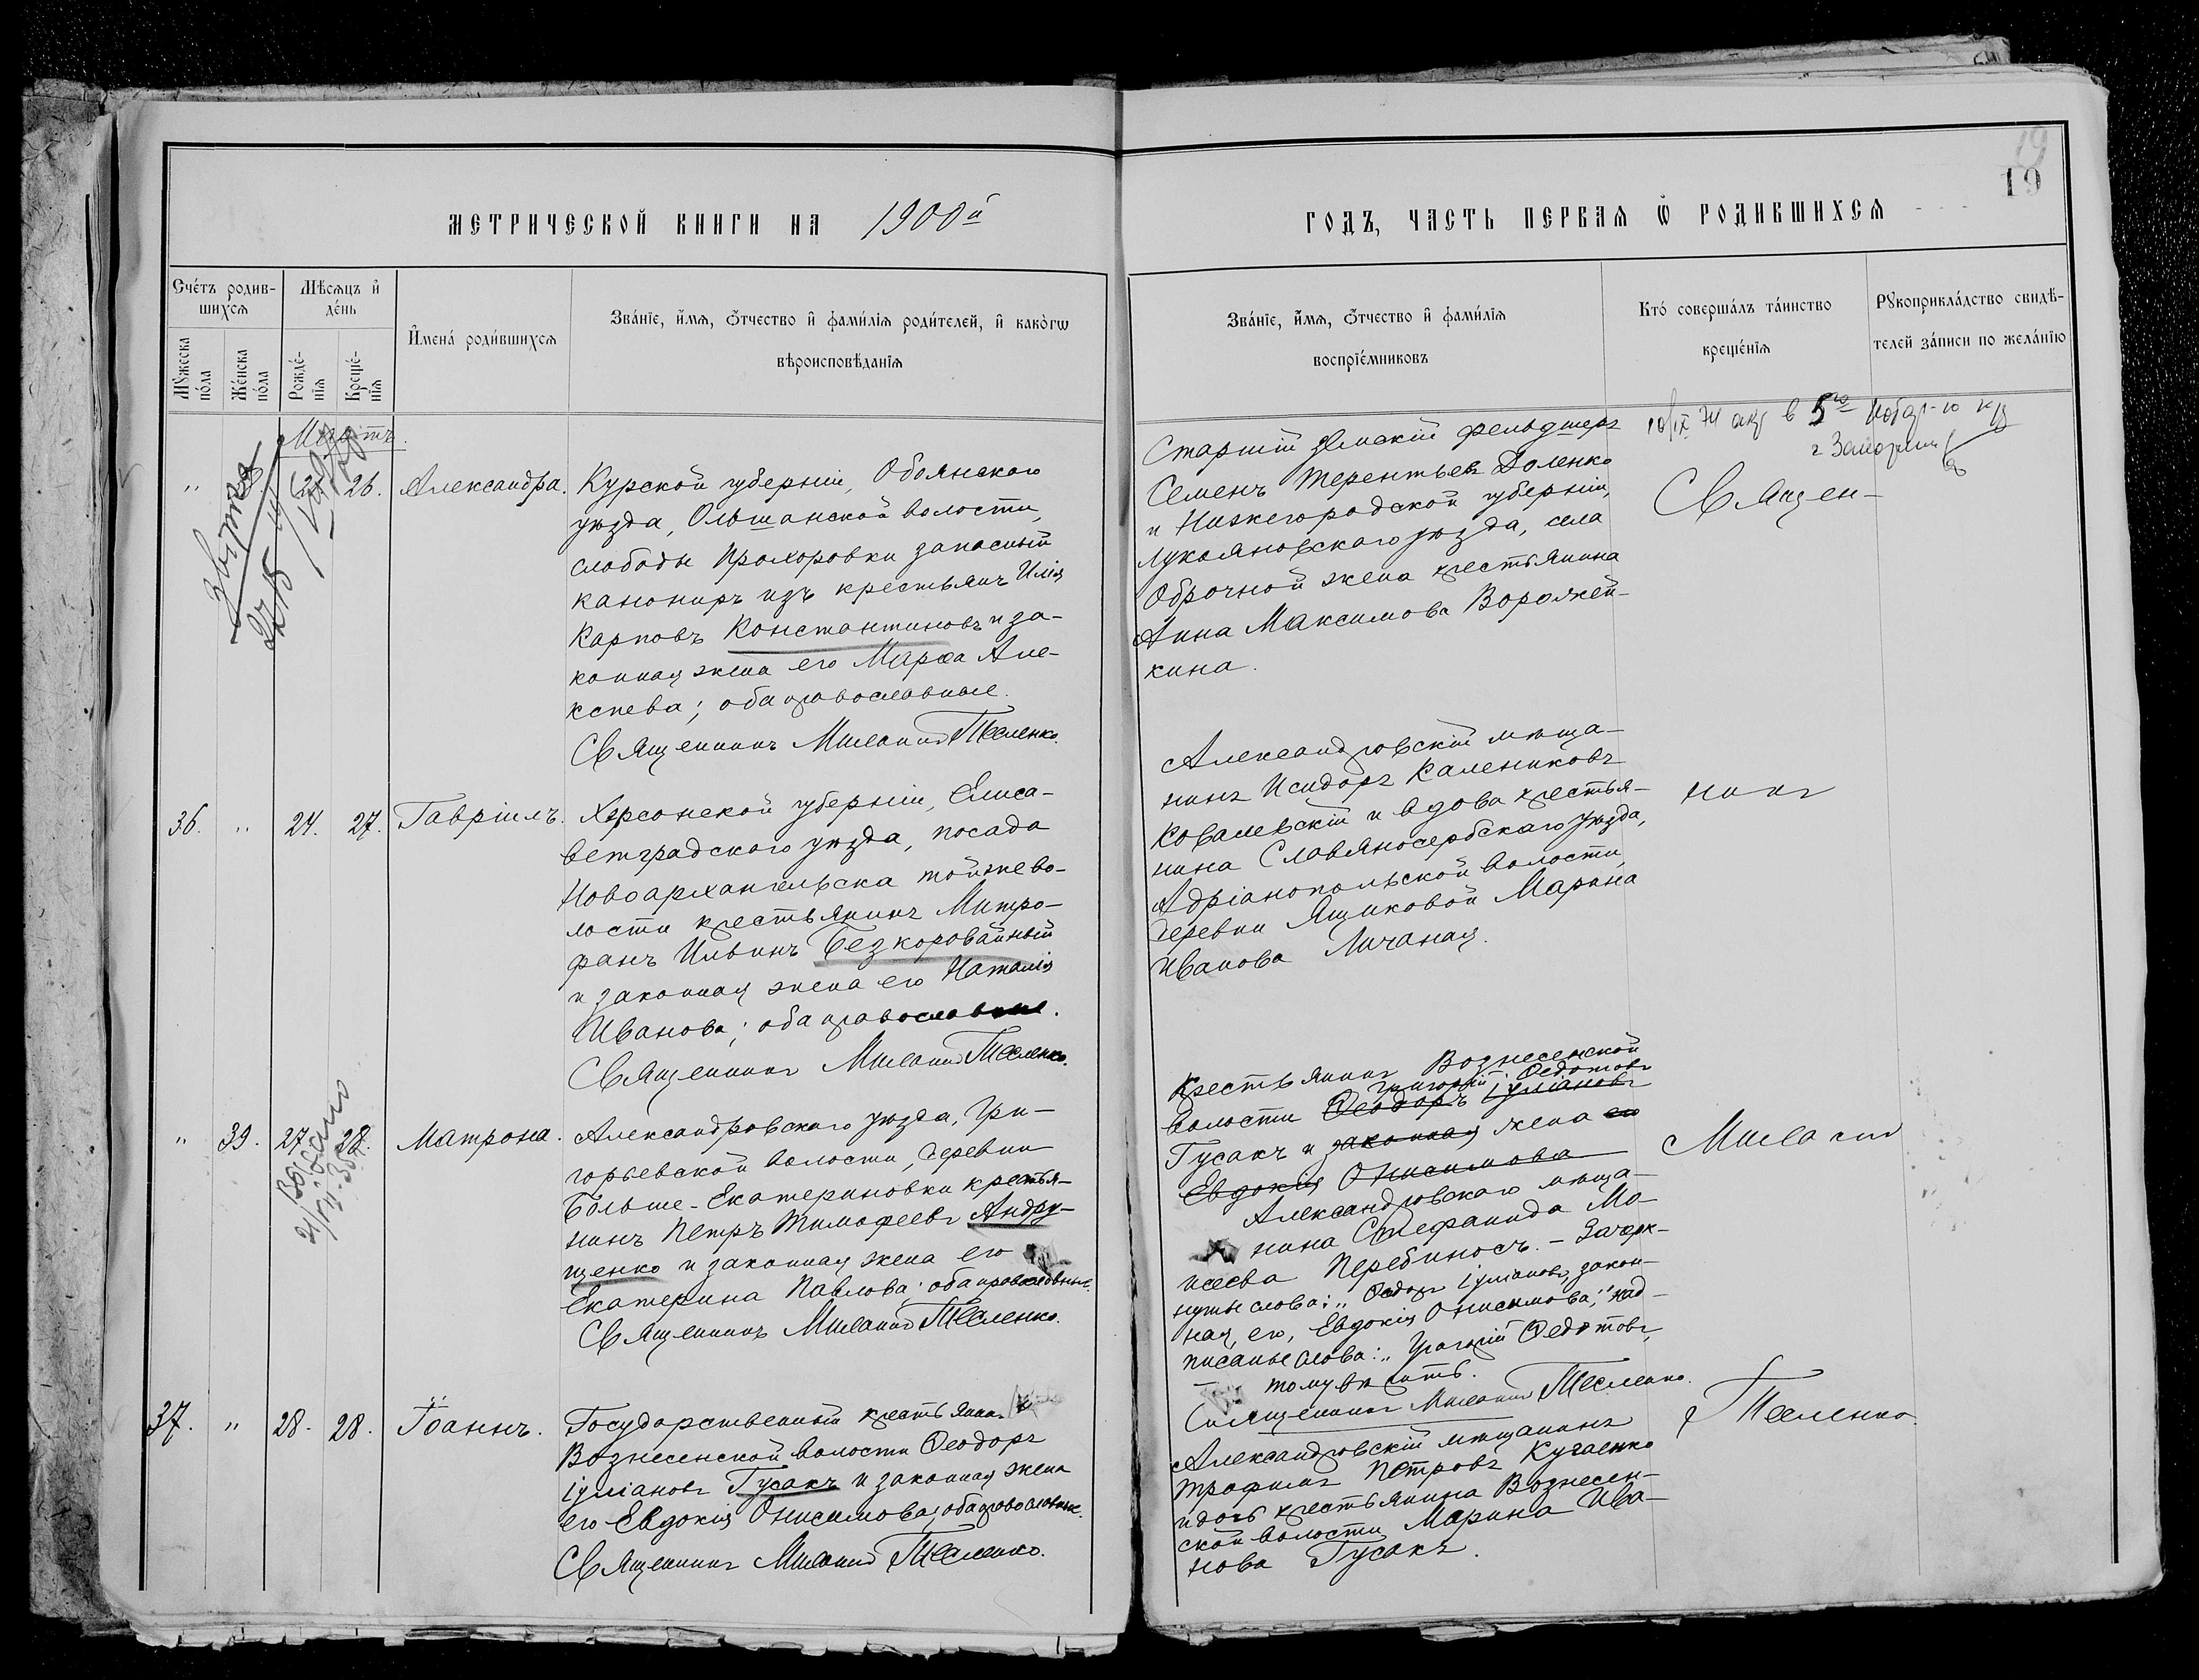 19
19
МЕТРИЧЕСКОЙ КНИГИ НА 1900й
ГОДЪ, ЧАСТЬ ПЕРВАѦ Ѽ РОДИВШИХСѦ
Счéтъ родив-
шихсѧ
Мѣсѧцъ и҆
дéнь
Мꙋ́жеска
пóла
Жéнска
пóла
Рождé-
нїѧ
Крещé-
нїѧ
И҆мена́ роди́вшихсѧ
Зва́нїе, и҆́мѧ, ѻ҆́тчество и҆ фами́лїѧ роди́телей, и҆ како́гѡ
вѣроисповѣ́данїѧ
Зва́нїе, и҆́мѧ, ѻ҆́тчество и҆ фами́лїѧ
воспрїе́мниковъ
Кто́ соверша́лъ та́инство
креще́нїѧ
Рꙋкоприкла́дство свидѣ́-
телей за́писи по жела́нїю
Мартъ.
" 26. Александра.
Курской губерніи, Обоянского
уѣзда, Ольшанской волости,
слободы Прохоровки запасный
канониръ изъ крестьянъ Илія
Карповъ Константиновъ и за-
конная жена его Марѳа Але-
ксѣева; оба православные.
Священникъ Милетій Тесленко.
Старшій земскій фельдшеръ
Семенъ Терентьевъ Доленко
и Нижегородской губерніи,
Лукояновскаго уѣзда, села
Оброчной жена крестьянина
Анна Максимова Ворожей-
кина.
Священ-
36. " 24. 27. Гавріилъ.
Херсонской губерніи, Елиса-
ветградского уѣзда, посада
Новоархангельска той же во-
лости крестьянинъ Митро-
фанъ Ильинъ Безкоровайный
и законная жена его Наталія
Иванова; оба православные.
Священникъ Тесленко.
Александровскій мѣща-
нинъ Исидоръ Калениковъ
Ковалевскій и вдова крестья-
нина Славяносербскаго уѣзда,
Адріанопольской волости,
деревни Ящиковой Марина
Иванова Личаная.
никъ
" 39. 27. 28. Матрона.
Александровского уѣзда, Гри-
горьевской волости, деревни
Больше-Екатериновки крестья-
нинъ Петръ Тимофеевъ Андру-
щенко и законная жена его
Екатерина Павлова; оба православные.
Священникъ Тесленко.
Крестьянинъ Вознесенской
Григорій Ѳедотовъ
волости Ѳеодоръ Іуліановъ
Гусакъ и законная жена его
Евдокія Онисимова
Александровскаго мѣща-
нина Стефанида Мо-
исеева Перебиносъ. - Зачерк-
нутые слова: „Ѳеодоръ Іуліановъ, закон-
ная, его, Евдокія Онисимова," над-
писаные слова: „Григорій Ѳедотовъ,
тому вѣрить.
Священникъ Тесленко.
37. " 28. 28. Іоаннъ.
Государственный крестьянинъ
Вознесенской волости Ѳеодоръ
Іуліановъ Гусакъ и законная жена
его Евдокія Онисимова, оба православные.
Священникъ Тесленко.
Александровскій мѣщанинъ
Трофимъ Петровъ Кучаенко
и дочь крестьянина Вознесен-
ской волости Марина Ива-
нова Гусакъ.
Тесленко.